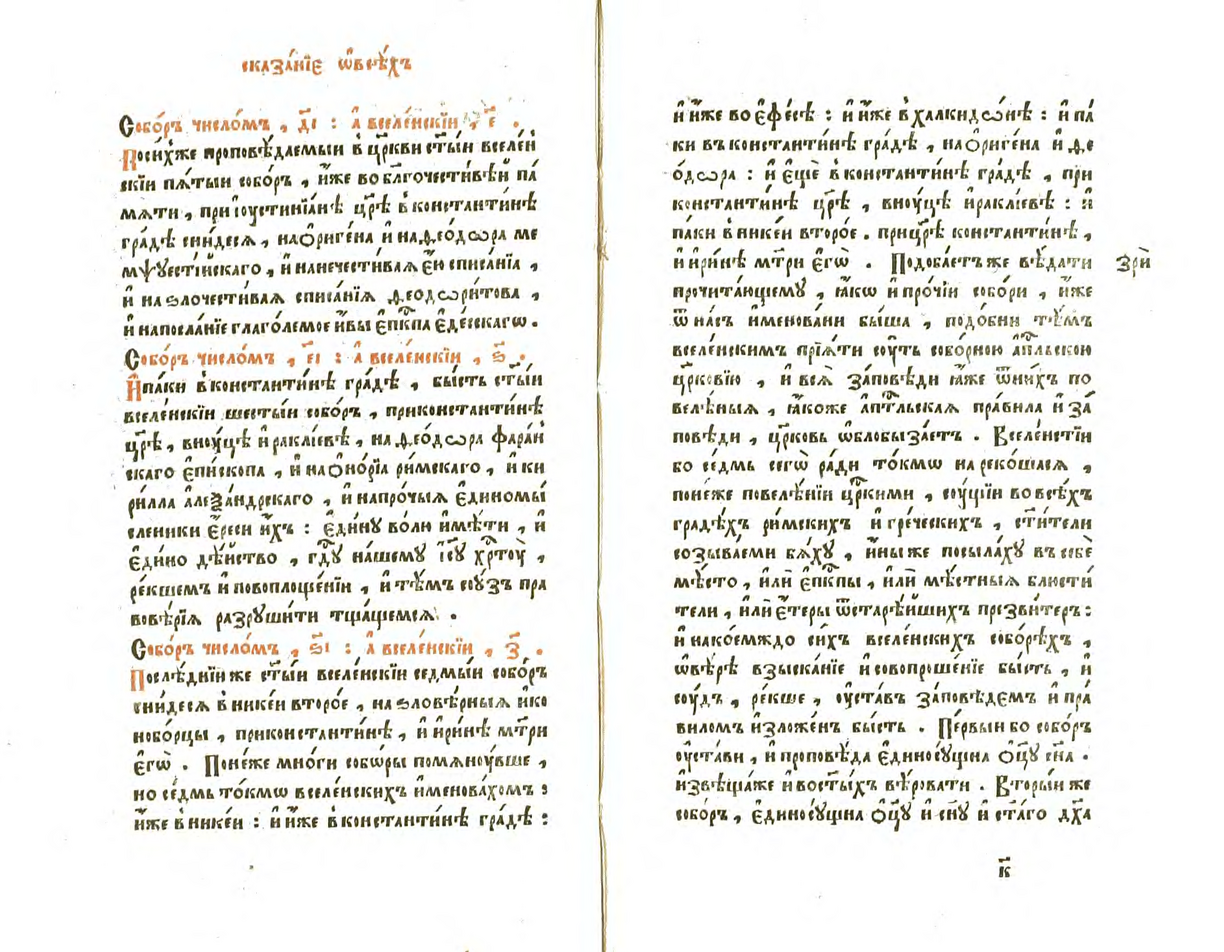 сказа́нїе ѡ҆все́хъ
Собо́ръ число́мъ , д҃і : а҆ вселе́нскїи , е҃ .
Поси́хже проповѣ́даемыи в цр҃кви ст҃ы́и вселе́н
скїи пѧ́тыи собо́ръ , и҆́же во бл҃гочести́вѣи па́
мѧти , при і҆оустинїа́нѣ цр҃ѣ̀ в константи́нѣ
гра́дѣ сни́десѧ , на ѻ҆риге́на и҆ на ѳ҆ео́дѡра ме
мѱуести́йскаго , и҆ на нечести́ваѧ є҆ю̀ списа́нїа ,
и҆ на ѕлочести́ваѧ списа́нїѧ ѳ҆еодѡри́това ,
и҆ на посла́нїе глаго́лемое и҆́вы є҆пкⷭ҇па є҆де́сскагѡ .
Собо́ръ число́мъ , е҃і : а҆ вселе́нскїи , ѕ҃ .
И҆ па́ки в константи́нѣ гра́дѣ , бы́сть ст҃ы́и
вселе́нскїи шесты́и собо́ръ , при константи́нѣ
цр҃ѣ̀ , вноу́цѣ и҆ракли́евѣ , на ѳ҆ео́дѡра фара́н
скаго є҆пи́скопа , и҆ на ѻ҆но́рїа ри́мскаго , и҆ ки
ри́лла а҆леѯа́ндрскаго , и҆ на про́чыѧ є҆диномы́
сленики є҆́реси и҆́хъ : є҆ди́ну во́лю и҆мѣ́ти , и҆
є҆ди́но дѣ́йство , гдⷭ҇у на́шему і҆с҃у хрⷭ҇тоу̀ ,
ре́кшемъ и҆ по воплоще́нїи , и҆ тѣ́мъ сою́зъ пра
вовѣ́рїѧ разруши́ти тща́щемсѧ .
Собо́ръ число́мъ , ѕ҃і : а҆ вселе́нскїи , з҃ .
Послѣ́днїи же ст҃ы́и вселе́нскїи седмы́и собо́ръ
сни́десѧ в нике́и второ́е , на ѕловѣ́рныѧ и҆ко
нобо́рцы , при константи́нѣ , и҆ и҆ри́нѣ мт҃ри
є҆гѡ̀ . Поне́же мно́ги собѡ́ры помѧноу́вше ,
но се́дмь то́кмѡ вселе́нскихъ и҆менова́хомъ :
и҆́же в нике́и : и҆ и҆́же в константи́нѣ гра́дѣ :
и҆ и҆́же во є҆фе́сѣ : и҆ и҆́же в халкидѡ́нѣ : и҆ па́
ки въ константи́нѣ гра́дѣ , на ѻ҆риге́на и҆ ѳ҆е
о́дѡра : и҆ є҆щѐ в константи́нѣ гра́дѣ , при
константи́нѣ цр҃ѣ̀ , вноу́цѣ и҆ракли́евѣ : и҆
па́ки в нике́и второ́е . при цр҃ѣ̀ константи́нѣ ,
и҆ и҆ри́нѣ мт҃ри є҆гѡ̀ . Подоба́етъ же вѣ́дати
зрѝ
прочита́ющему , ꙗ҆́кѡ и҆ про́чїи собо́ри , и҆́же
ѿ на́съ и҆менова́ни бы́ша , подо́бни тѣ́мъ
вселе́нскимъ прїѧ́ти соу́ть собо́рною а҆пⷭ҇льскою
цр҃ковїю , и҆ всѧ̀ за́повѣди ꙗ҆́же ѿ ни́хъ по
велѣ́ныѧ , ꙗ҆́коже а҆пⷭ҇тльскаѧ пра́вила и҆ за́
повѣди , цр҃ковь ѡ҆блобыза́етъ . Вселе́нстїи
бо се́дмь сегѡ̀ ра́ди то́кмѡ нареко́шасѧ ,
поне́же повелѣ́нїи цр҃кими , соу́щїи во всѣ́хъ
градѣ́хъ ри́мскихъ и҆ гре́ческихъ , ст҃и́тели
созыва́еми бѧ́ху , и҆́ны же посыла́ху въ себѐ
мѣ́сто , и҆лѝ є҆пкⷭ҇пы , и҆лѝ мѣ́стныѧ блюсти́
тели , и҆лѝ є҆́теры ѿ старѣ́йшихъ презви́теръ :
и҆ на ко́емждо си́хъ вселе́нскихъ собо́рѣхъ ,
ѡ҆ вѣ́рѣ взыска́нїе и҆ совопроше́нїе бы́сть , и҆
соу́дъ , ре́кше , оу҆ста́въ за́повѣдемъ и҆ пра́
виломъ и҆зложе́нъ бы́сть . Пе́рвыи бо собо́ръ
оу҆ста́ви , и҆ проповѣ́да є҆диносу́щна ѻ҆ц҃у̀ сн҃а .
и҆звѣща́же и҆ во ст҃ы́хъ вѣ́ровати . Вторы́и же
собо́ръ , є҆диносу́щна ѻ҆ц҃у̀ и҆ сн҃у и҆ ст҃а́го дх҃а
к҃